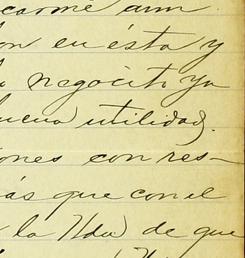 carme aun
on en ésta y
negocito ya
buena utilidad.
iones con res-
ás que con el
la Hda de que